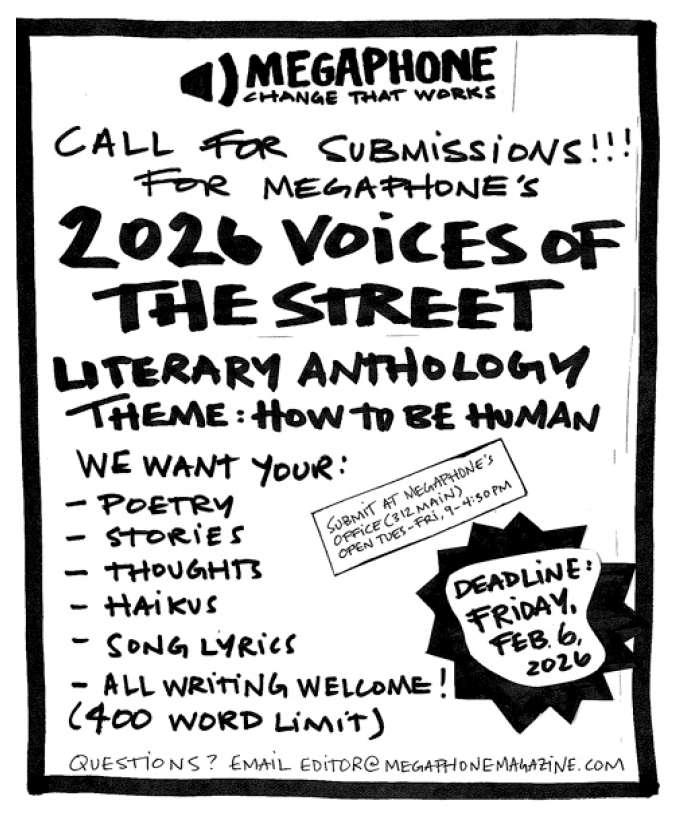 MEGAPHONE
CHANGE THAT WORKS
CALL FOR SUBMISSIONS!!!
FOR MEGAPHONE'S
2026 VOICES OF
THE STREET
LITERARY ANTHOLOGY
THEME: HOW TO BE HUMAN
WE WANT YOUR:
- POETRY
- STORIES
- THOUGHTS
- HAIKUS
- SONG LYRICS
- ALL WRITING WELCOME!
(400 WORD LIMIT)
SUBMIT AT MEGAPHONE'S
OFFICE (312 MAIN)
OPEN TUES-FRI, 9-4:30PM
DEADLINE:
FRIDAY,
FEB. 6,
2026
QUESTIONS? EMAIL EDITOR@MEGAPHONEMAGAZINE.COM